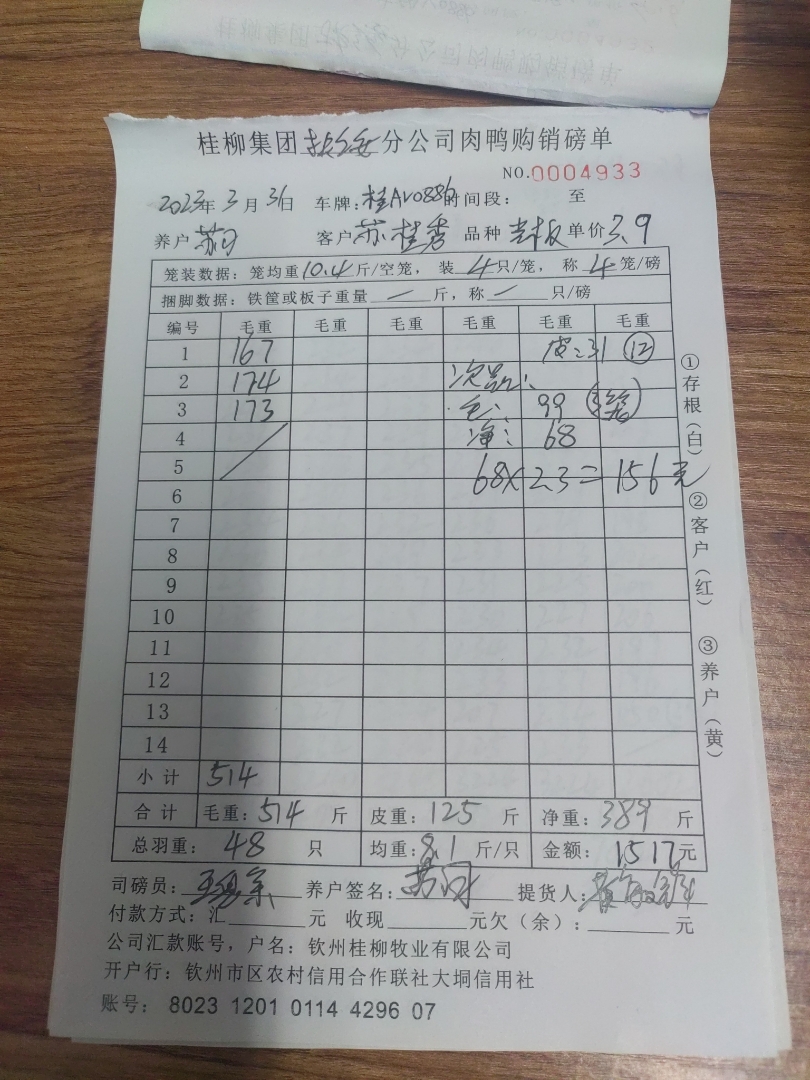 桂柳集团 分公司肉鸭购销磅单
NO.0004933
2023年3月31日 车牌:桂AV0886 时间段: 至
养户 苏 客户 苏桂秀 品种 单价3.9
笼装数据: 笼均重10.4斤/空笼, 装4只/笼, 称4笼/磅
捆脚数据: 铁筐或板子重量 / 斤, 称 / 只/磅
编号 毛重 毛重 毛重 毛重 毛重 毛重
1 167 皮:31 ⑫
2 174 次品:
3 173 毛: 99 (3笼)
4 净: 68
5 68×2.3=156元
6
7
8
9
10
11
12
13
14
小计 514
合计 毛重:514 斤 皮重:125 斤 净重:389 斤
总羽重: 48 只 均重:8.1 斤/只 金额: 1517元
司磅员: 养户签名: 苏 提货人:
付款方式: 汇 元 收现 元欠(余): 元
公司汇款账号, 户名: 钦州桂柳牧业有限公司
开户行: 钦州市区农村信用合作联社大垌信用社
账号: 8023 1201 0114 4296 07
①存根(白) ②客户(红) ③养户(黄)